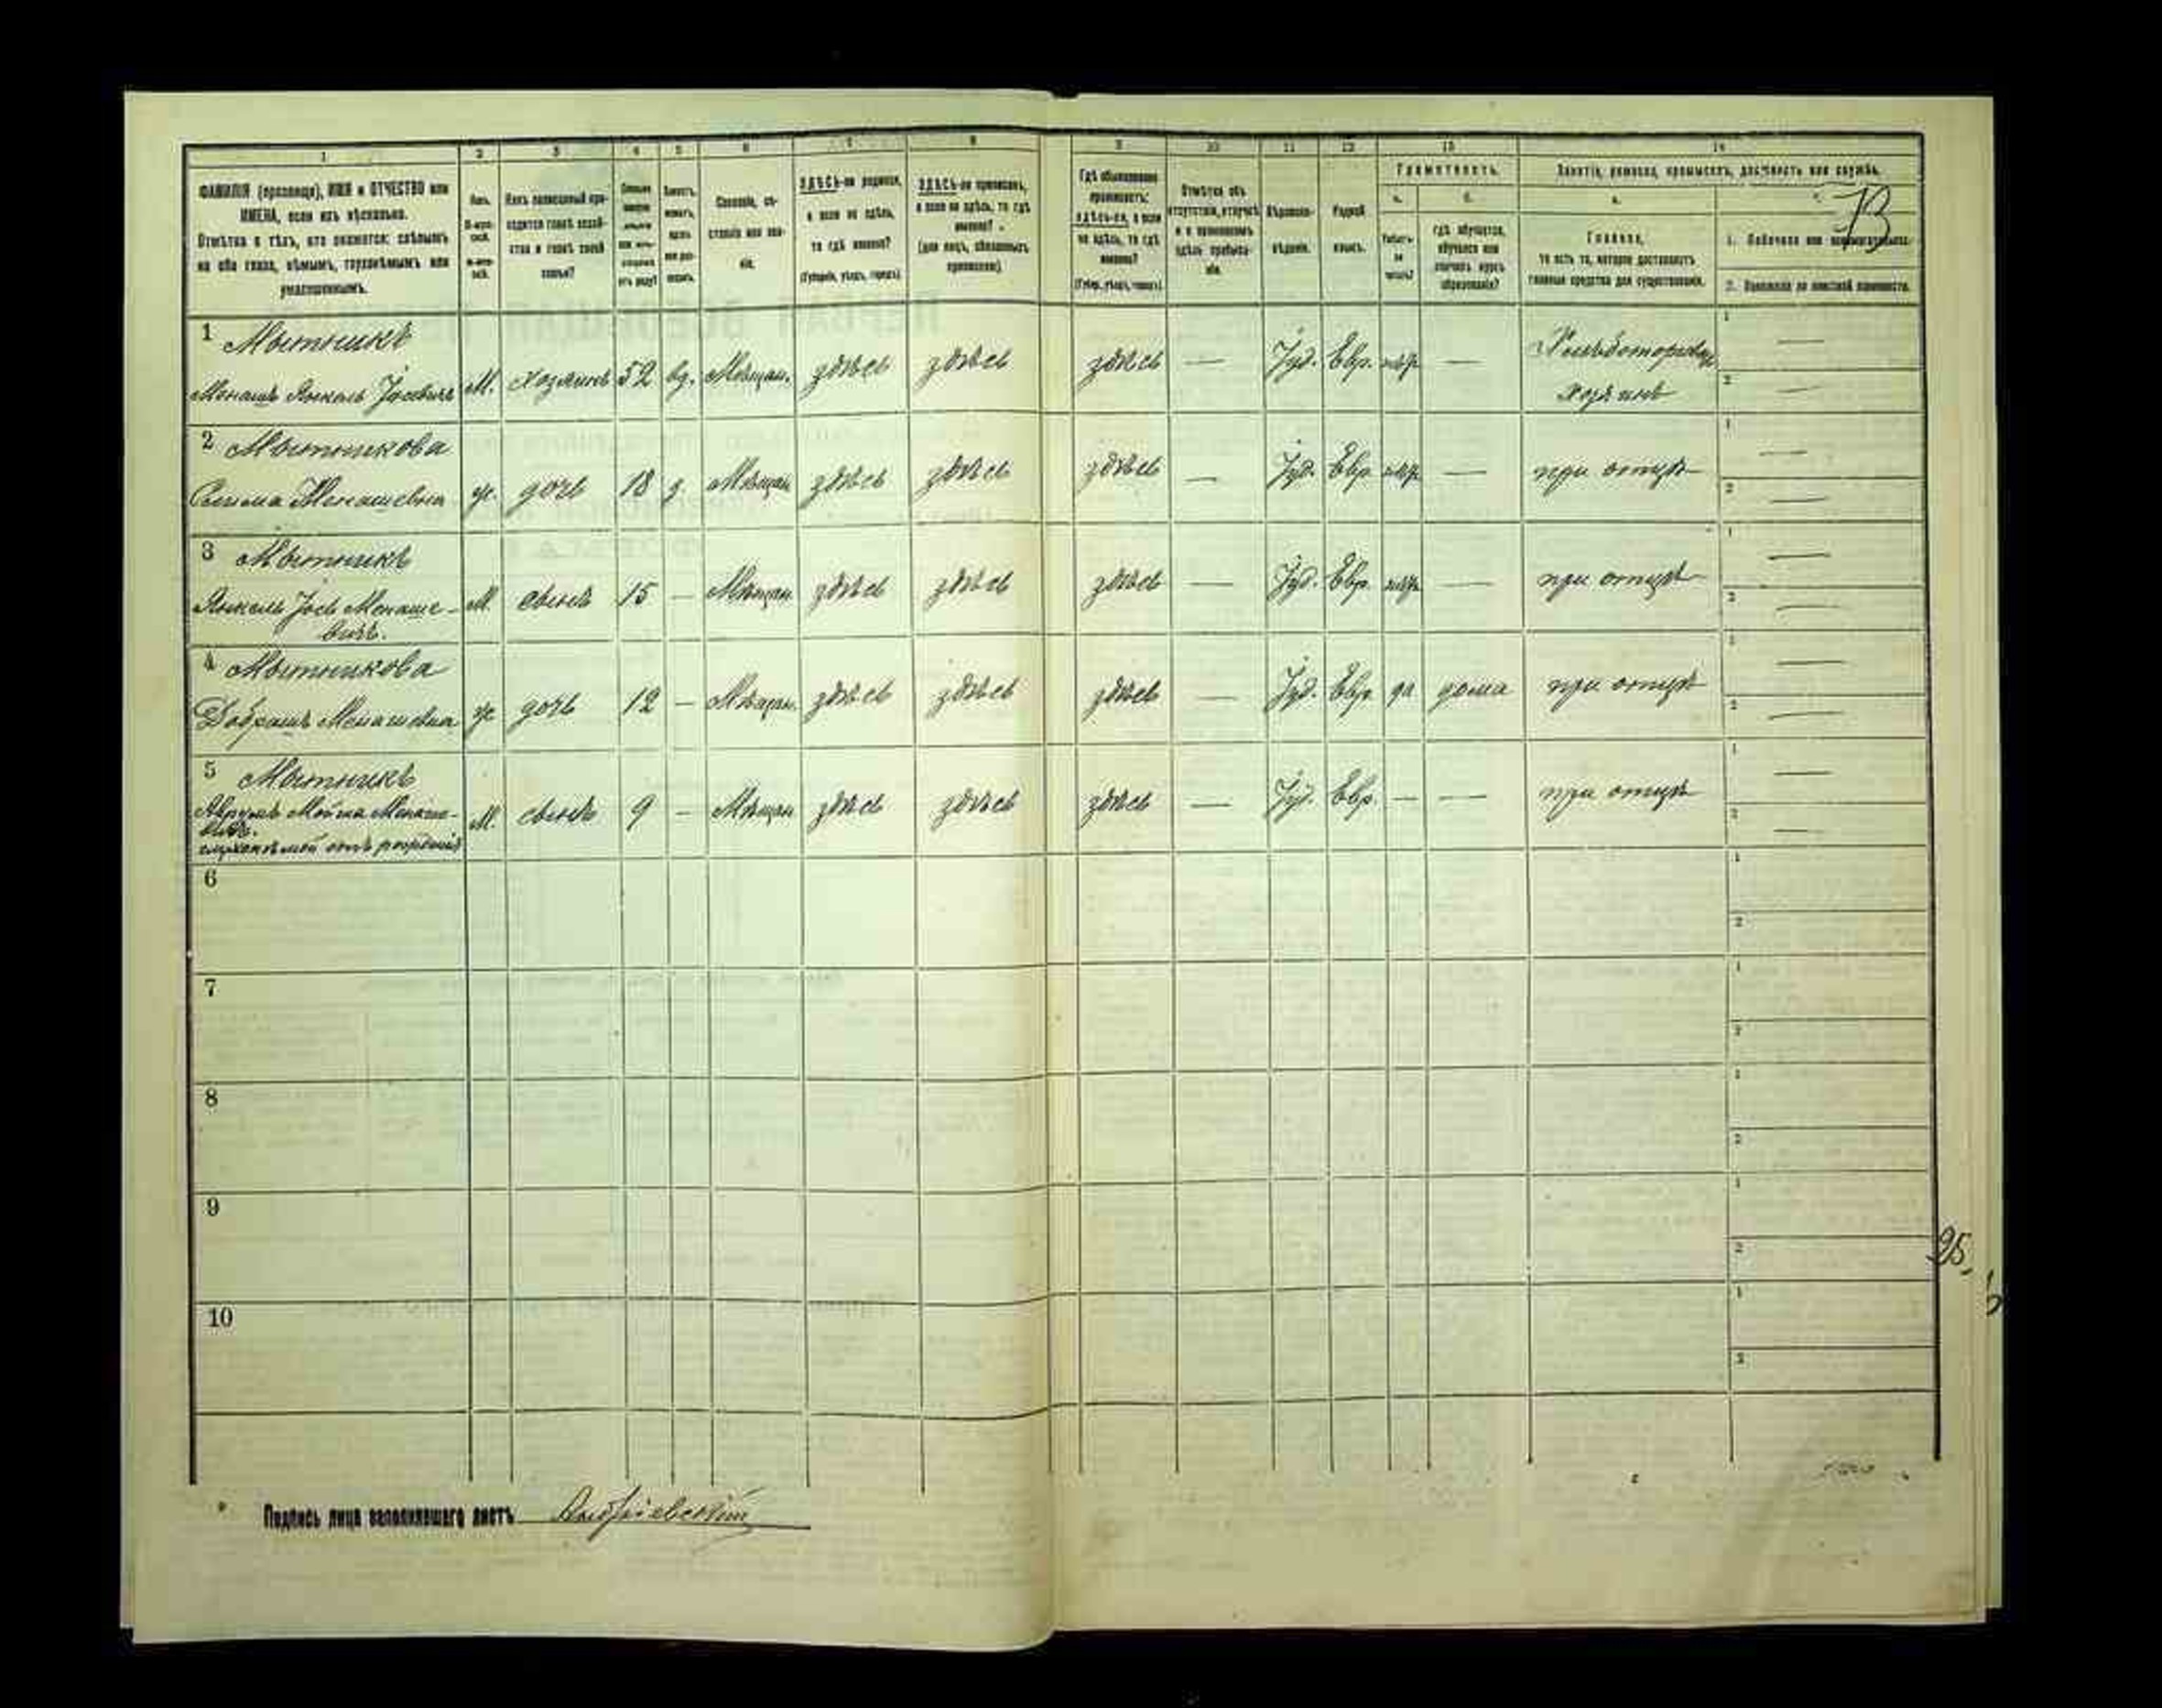 1 2 3 4 5 6 7 8 9 10 11 12 13 14
ФАМИЛІЯ (прозвище), ИМЯ и ОТЧЕСТВО или
ИМЕНА, если ихъ нѣсколько.
Отмѣтка о тѣхъ, кто окажется: слѣпымъ
на оба глаза, нѣмымъ, глухонѣмымъ или
умалишеннымъ.
Полъ.
Какъ записанный при-
ходится главѣ хозяй-
ства и главѣ своей
семьи?
Сословіе, со-
стояніе или зва-
ніе.
ЗДѢСЬ-ли родился,
а если не здѣсь,
то гдѣ именно?
(Губернія, уѣздъ, городъ).
ЗДѢСЬ-ли приписанъ,
а если не здѣсь, то гдѣ
именно?
(для лицъ, обязанныхъ
припискою).
Гдѣ обыкновенно
проживаетъ:
здѣсь-ли, а если
не здѣсь, то гдѣ
именно?
(Губер., уѣздъ, городъ).
Отмѣтка объ
отсутствіи, отлучкѣ
и о временномъ
здѣсь пребыва-
ніи.
Вѣроиспо-
вѣданіе.
Родной
языкъ.
Грамотность.
а. б.
Умѣетъ-
ли
читать?
гдѣ обучается,
обучался или
кончилъ курсъ
образованія?
Занятіе, ремесло, промыселъ, должность или служба.
а.
Главное,
то есть то, которое доставляетъ
главныя средства для существованія.
73
1. Побочное или вспомогательное.
2. Положеніе по воинской повинности.
1 Мытникъ
Менашъ Янкель Іосевичъ М. хозяинъ 52 вд. Мѣщан. здѣсь здѣсь здѣсь — Іуд. Евр. — хозяинъ
2 Мытникова
Менашевна ж. дочь 18 д. Мѣщан здѣсь здѣсь здѣсь — Іуд. Евр. — при отцѣ
3 Мытникъ
Янкель Іось Менаше-
вичъ. М. сынъ 15 — Мѣщан здѣсь здѣсь здѣсь — Іуд. Евр. — при отцѣ
4 Мытникова
Добрашъ Менашевна ж дочь 12 — Мѣщан. здѣсь здѣсь здѣсь — Іуд. Евр. да дома при отцѣ
5 Мытникъ
Аврумъ Мойша Менаше-
вичъ.
глухонѣмой отъ рожденія М. сынъ 9 — Мѣщан здѣсь здѣсь здѣсь — Іуд. Евр. — — при отцѣ
6
7
8
9
25.
10
Подпись лица заполнившаго листъ Андріевскій